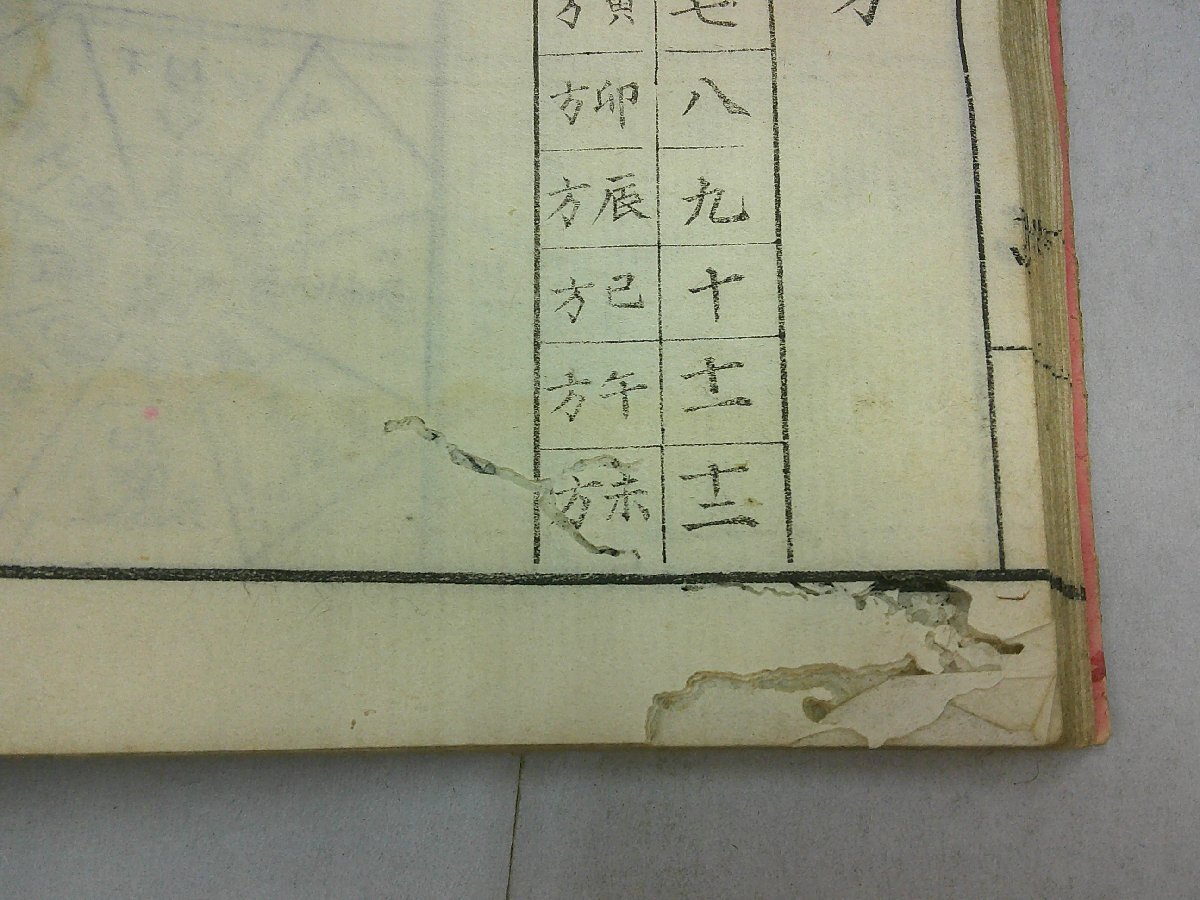 七 寅方
八 卯方
九 辰方
十 巳方
十一 午方
十二 未方